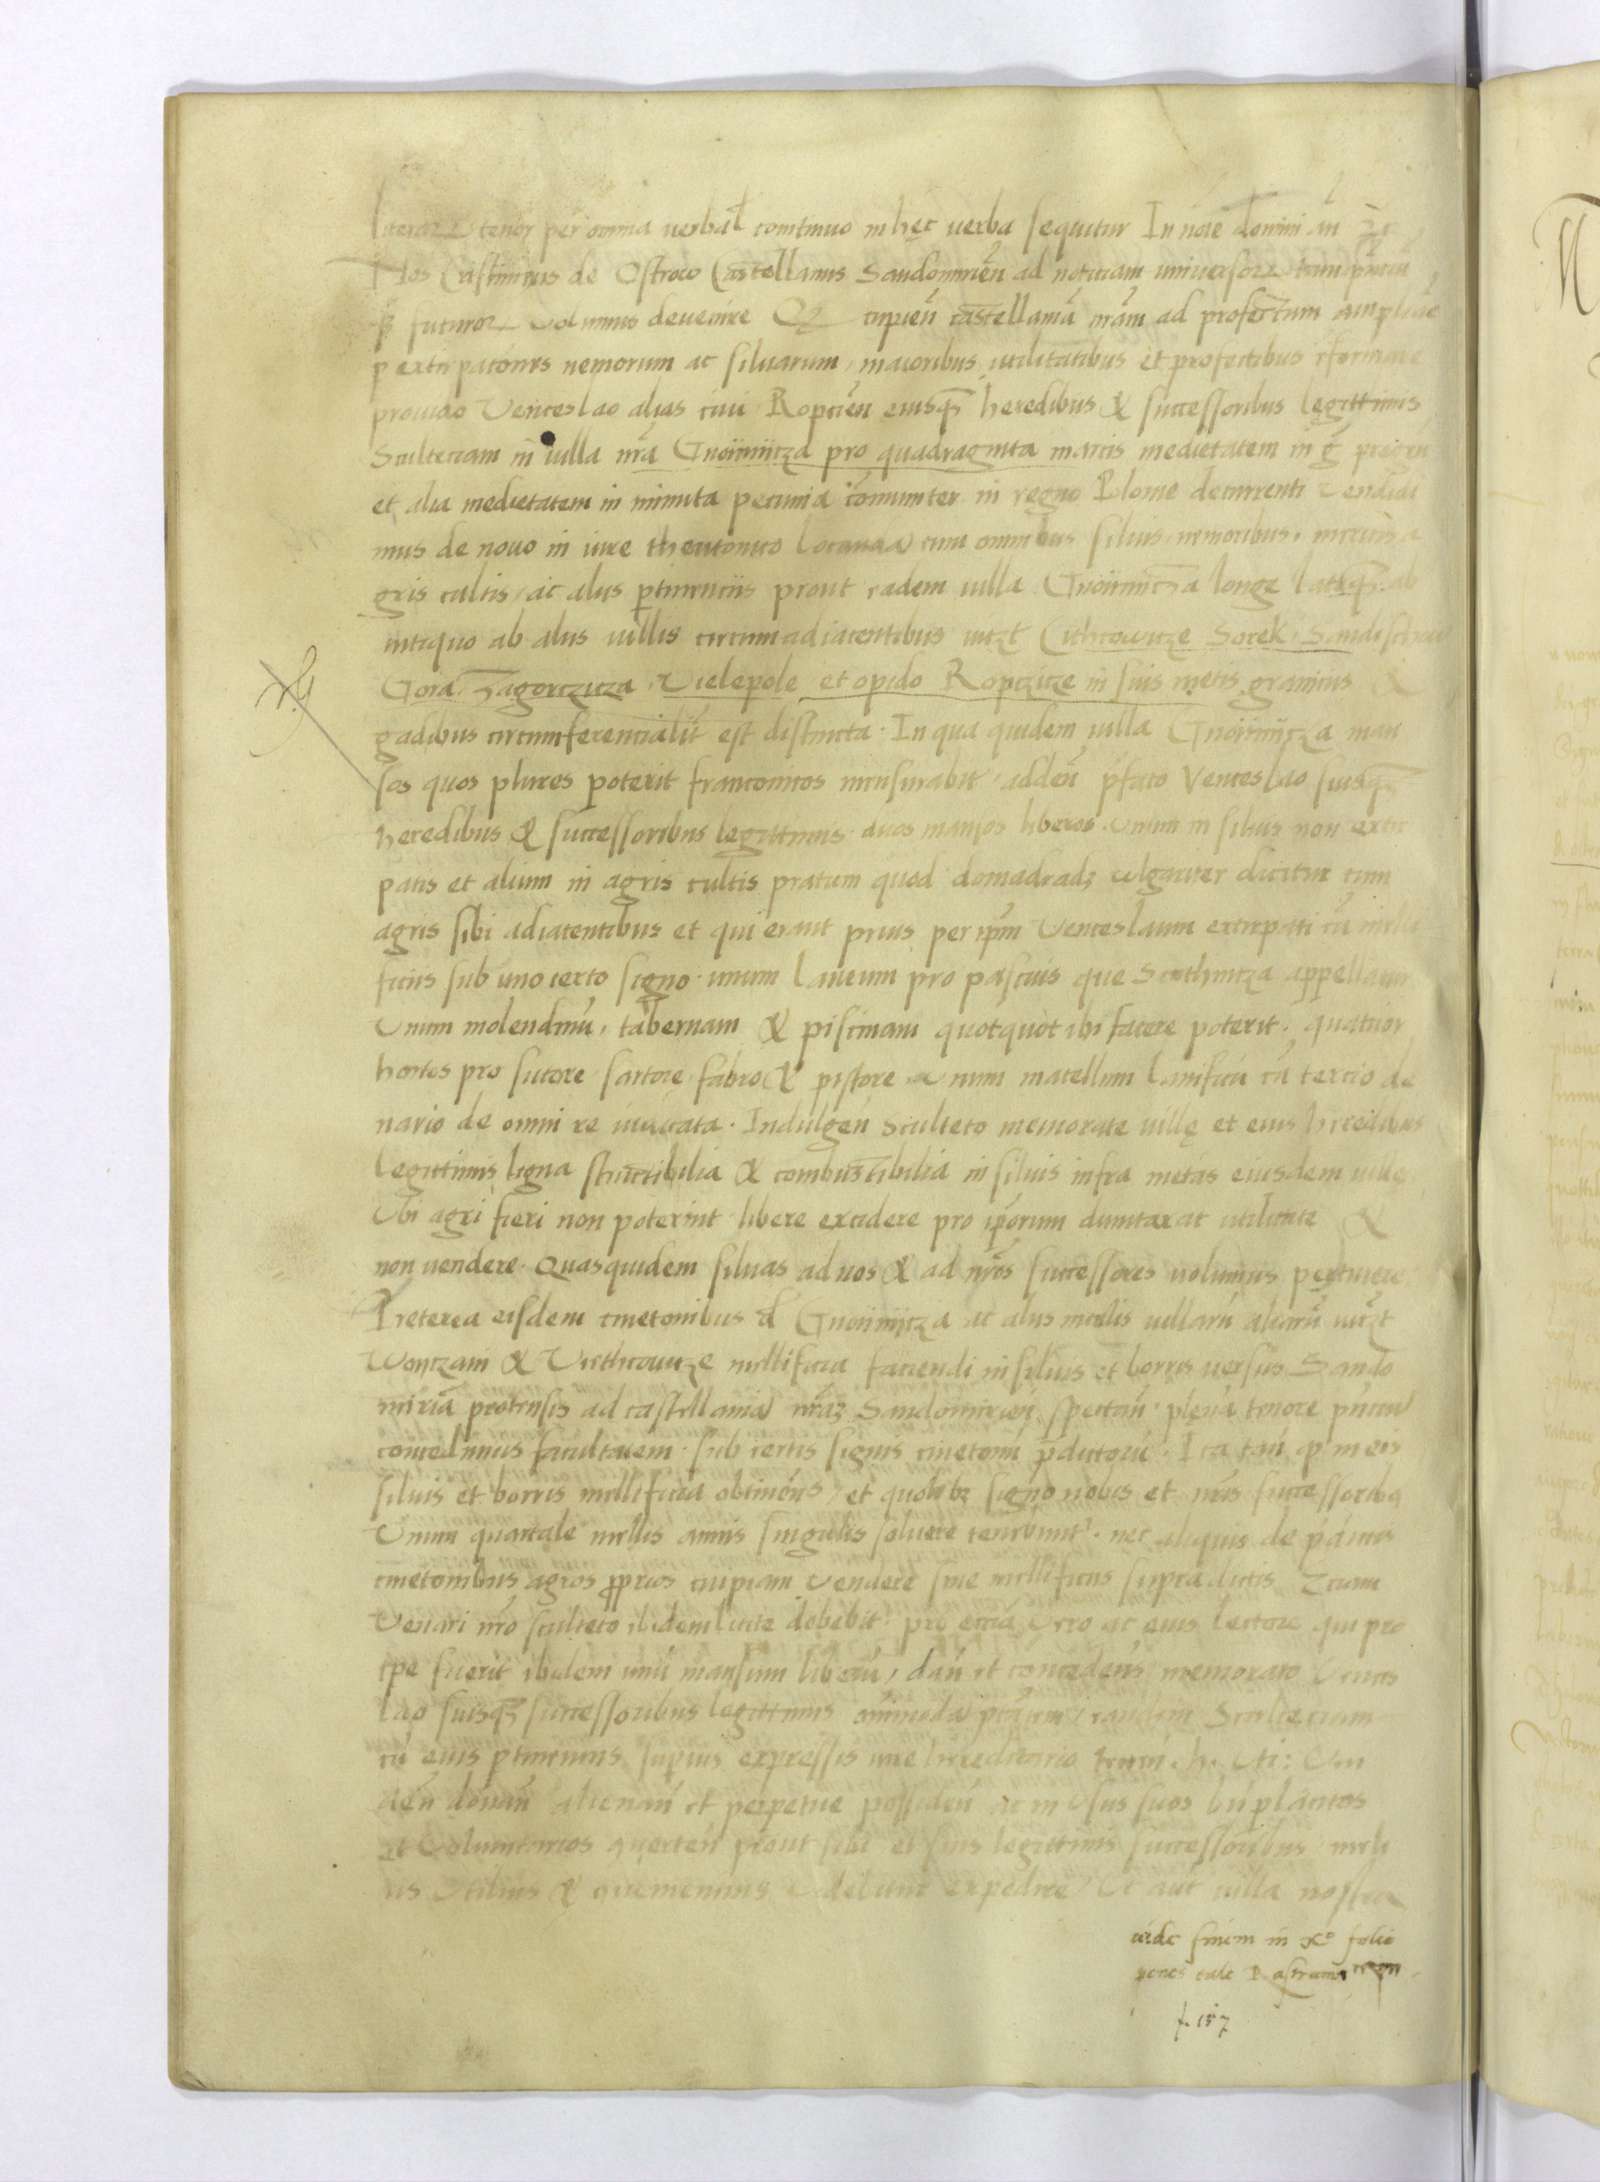 literarz tenor per omnia verbal continuo in hęc verba sequitur In noīe domini am
Nos Cristinus de Ostrow Castellanus Sandomirień ad noticiam universorz tam pñtiu
qz futurorz volumus devenire Qz cupień castellaniā nrām ad profectum ampliare
p extirpatōnes nemorum ac siluarum, maioribus utilitatibus et profectibus reformare
provido Venceslao alias civi Ropcień eiusqz heredibus & successoribus legittimis
Scultetiam in villa nrā Gnoinicza pro quadraginta marcis medietatem in g
et alia medietatem in minuta pecunia cōmuniter in regno Polonie decurrenti vendidi
mus de nouo in iure theutonico locanda cum omnibus siluis, nemoribus, mericis a
gris cultis, ac aliis ptinenciis prout eadem villa Gnoinicza longe lateqz ab
antiquo ab aliis villis circumadiacentibus viczt Withcowicze Borek, Sandischow
Gora Zagorczicza, Vielepole et opido Ropczicze in suis metis graniciis &
gadibus circumferencialit est distincta. In qua quidem villa Gnoinicza man
sos quos plures poterit franconicos mensurabit, addeń pfato Venceslao suisqz
heredibus & successoribus legittimis duos mansos liberos. Vnum in siluis non extir
patis et alium in agris cultis pratum quod domadradz wlgariter dicitur cum
agris sibi adiacentibus et qui erant prius per ipm Venceslaum extirpati cū melli
ficiis sub uno certo signo. unum laneum pro pascuis que Scothnicza appellatur
Vnum molendinū, tabernam & piscinam quotquot ibi facere poterit. quatuor
hortos pro sutore sartore fabro & pistore vnum macellum lanificii cū tercio de
nario de omni re iudicata. Indulgeń sculteto memorate villę et eius heredibus
legittimis ligna structibilia & combustibilia in siluis infra metas eiusdem ville
Vbi agri fieri non poterint libere excidere pro ipōrum dumtaxat utilitate &
non vendere. Quasquidem siluas ad nos & ad nrōs successores volumus pertinere
Preterea eisdem cmetonibus d Gnoinicza ac aliis incolis villarū aliarū viczt
Wonczani & Withcowicze mellificia faciendi in siluis et borris versus Sando
miriā protensis ad castellaniā nrām Sandomirień spectań. plena tenore pñciu
concedimus facultatem. sub certis signis cmetonū pdictorū. Ita tań qp in eis
siluis et borris mellificia obtineńs, et quolibz signo nobis et nrīs successoribq
Vnum quartale mellis annis singulis soluere tenebunt. nec aliquis de pdictis
cmetonibus agros pprios cuipiam vendere sine mellificiis supradictis
Venari nrō sculteto ibidem licite debebit. pro ecciā vero ac eius lectore qui pro
tpe fuerit ibidem unū mansum liberū, dań et concedeńs memorato Vences
lao suisqz successoribus legittimis omnimodā ptātem eandem Scultetiam
cū eius ptinentiis supius expressis iure hereditario
deń donań alienań et perpetue possideń ac in vsus suos bńplacitos
et voluntarios querteń prout sibi et suis legittimis successoribus meli
us vtilius & queniencius videbitur expedire. Et aut villa nostra
vide finem in Xo folio
penes
f. 157